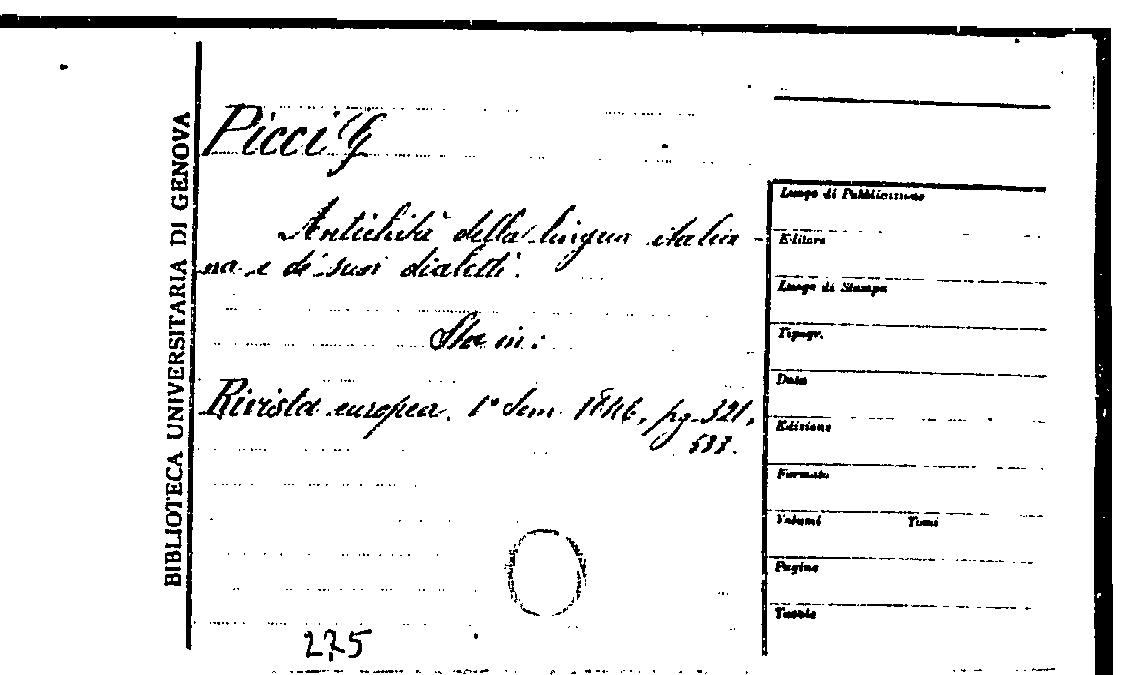 BIBLIOTECA UNIVERSITARIA DI GENOVA
Picci G
Antichità della lingua italia-
na e de' suoi dialetti.
Sta in:
Rivista europea. 1° Sem 1846, pg. 321,
533.
275
Luogo di Pubblicazione
Editore
Luogo di Stampa
Tipogr.
Data
Edizione
Formato
Volumi Tomi
Pagine
Tavole